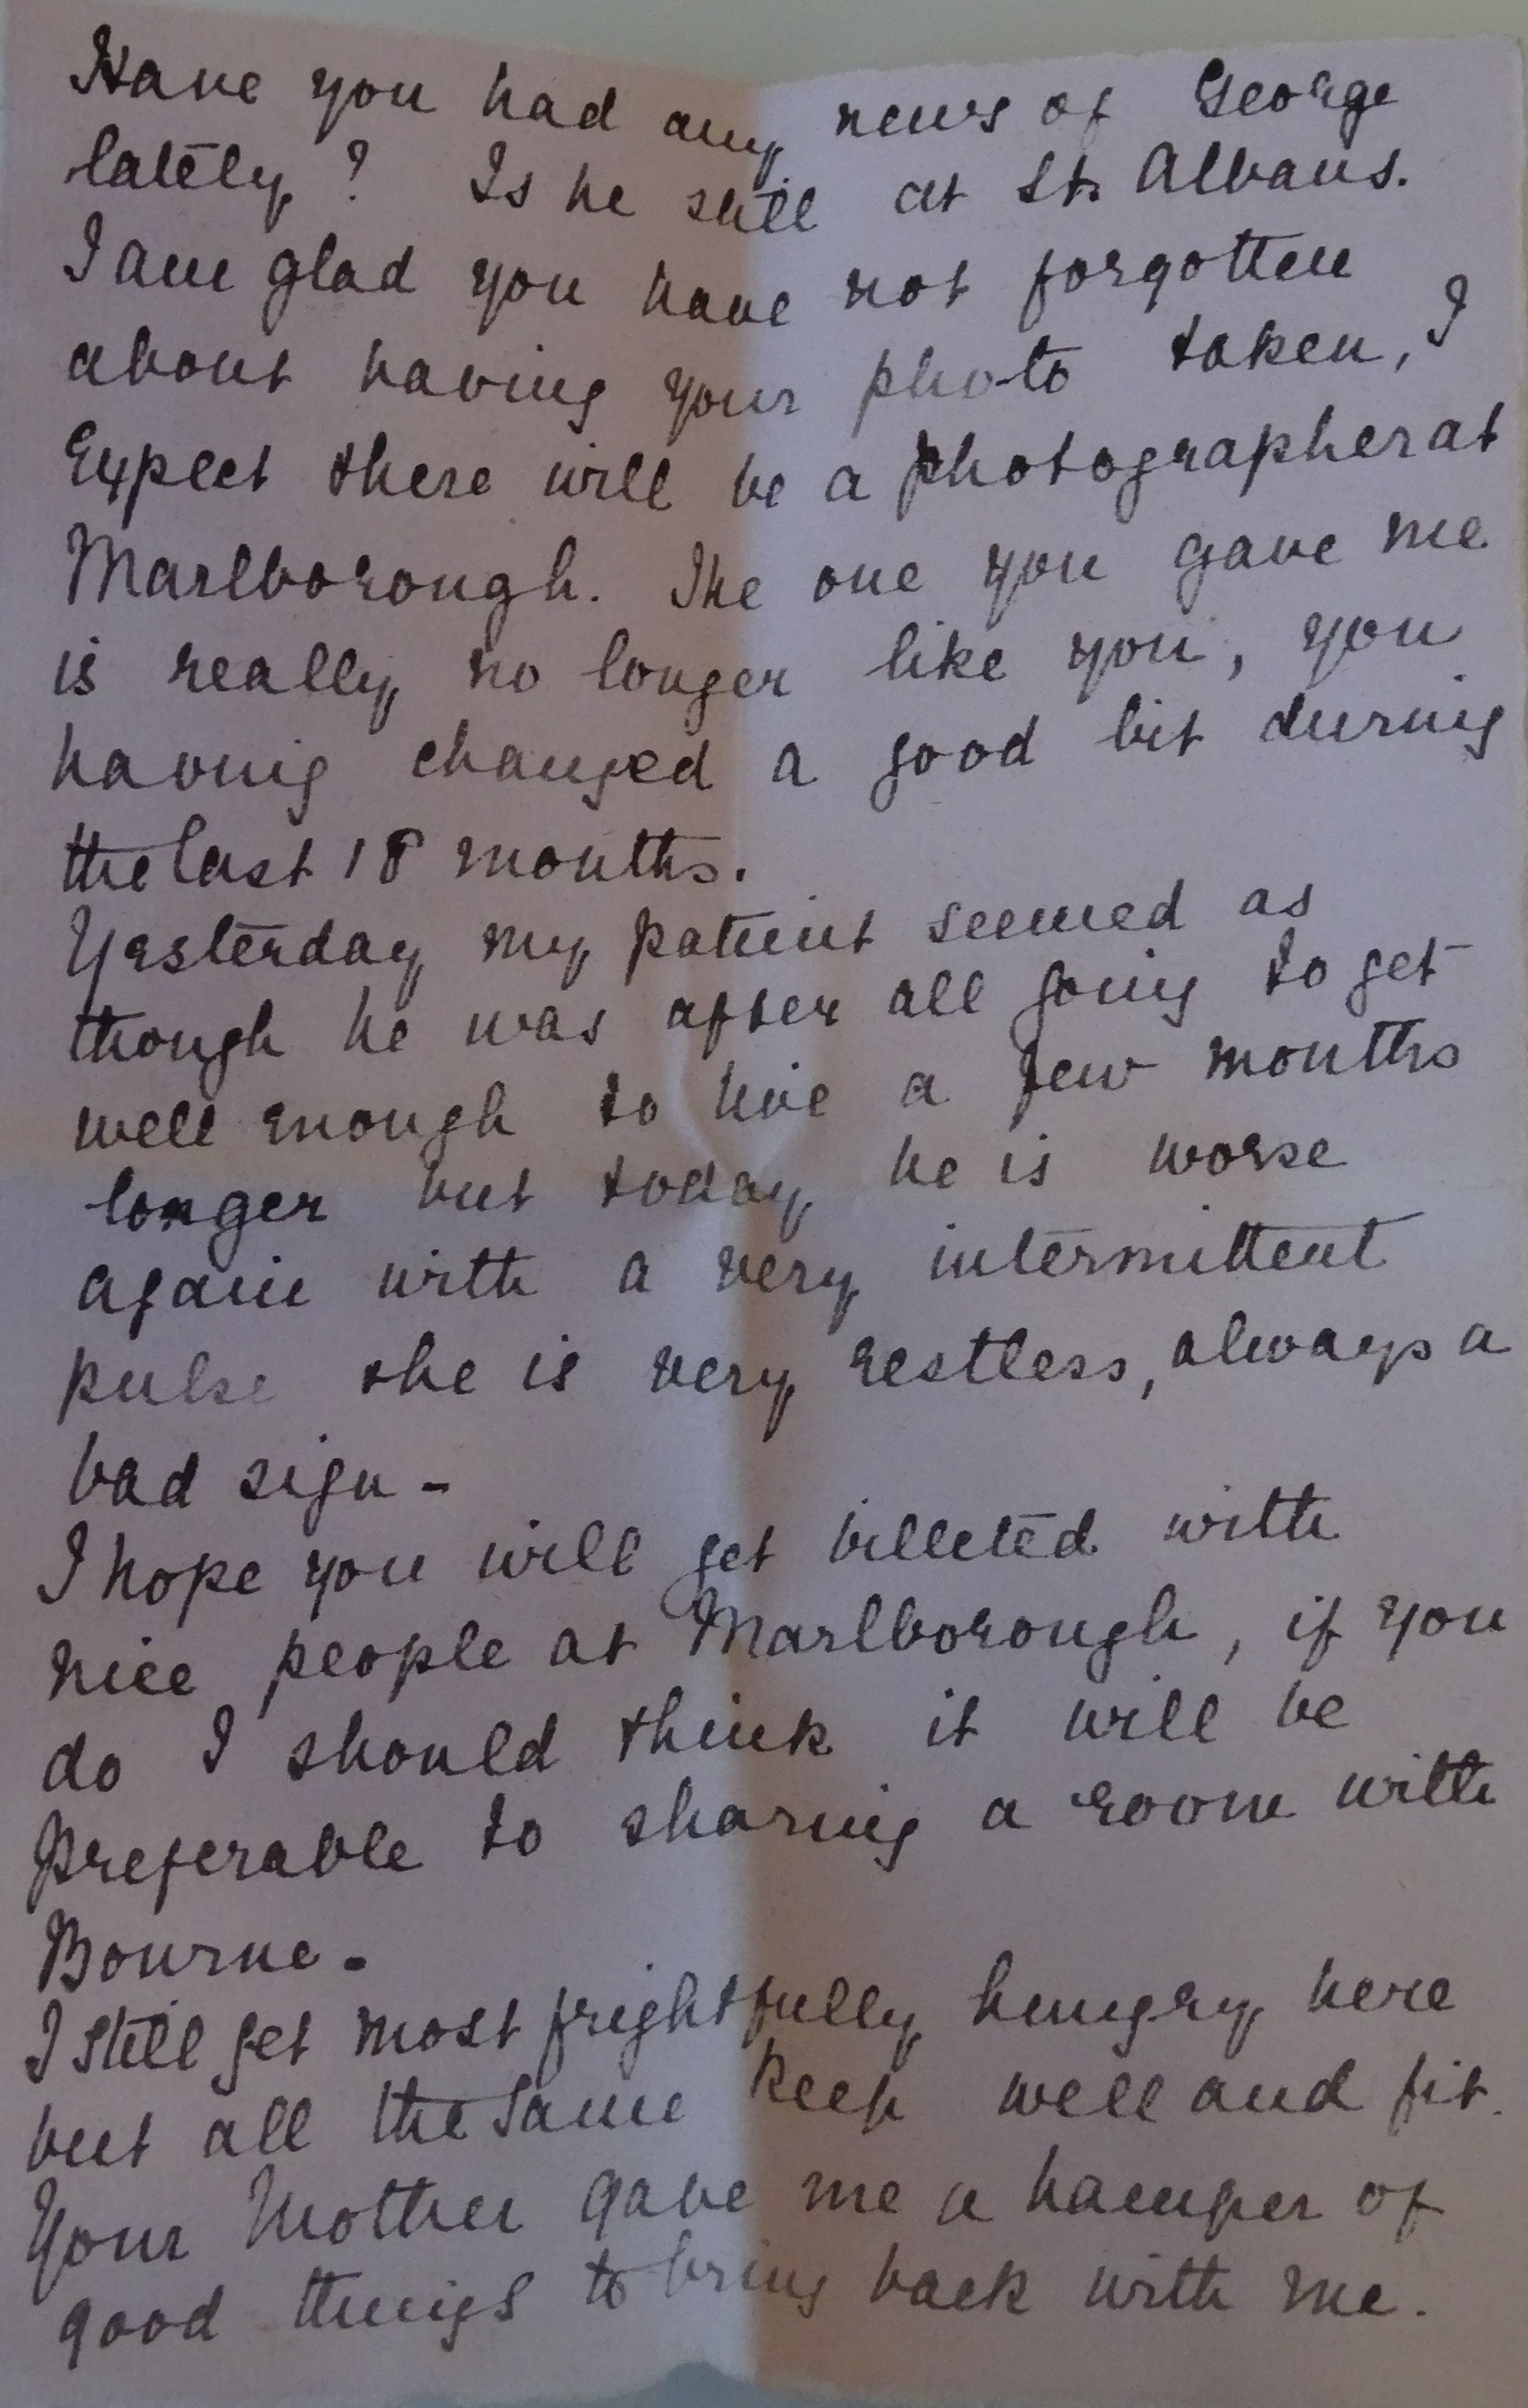 Have you had any news of George
lately? Is he still at St. Albans.
I am glad you have not forgotten
about having your photo taken, I
Expect there will be a photographer at
Marlborough. The one you gave me
is really no longer like you, you
having changed a good bit during
the last 18 months.
Yesterday my patient seemed as
though he was after all going to get
well enough to live a few months
longer but today he is worse
again with a very intermittent
pulse & he is very restless, always a
bad sign -
I hope you will get billeted with
nice people at Marlborough, if you
do I should think it will be
preferable to sharing a room with
Bourne -
I still get most frightfully hungry here
but all the same keep well and fit.
Your Mother gave me a hamper of
good things to bring back with me.